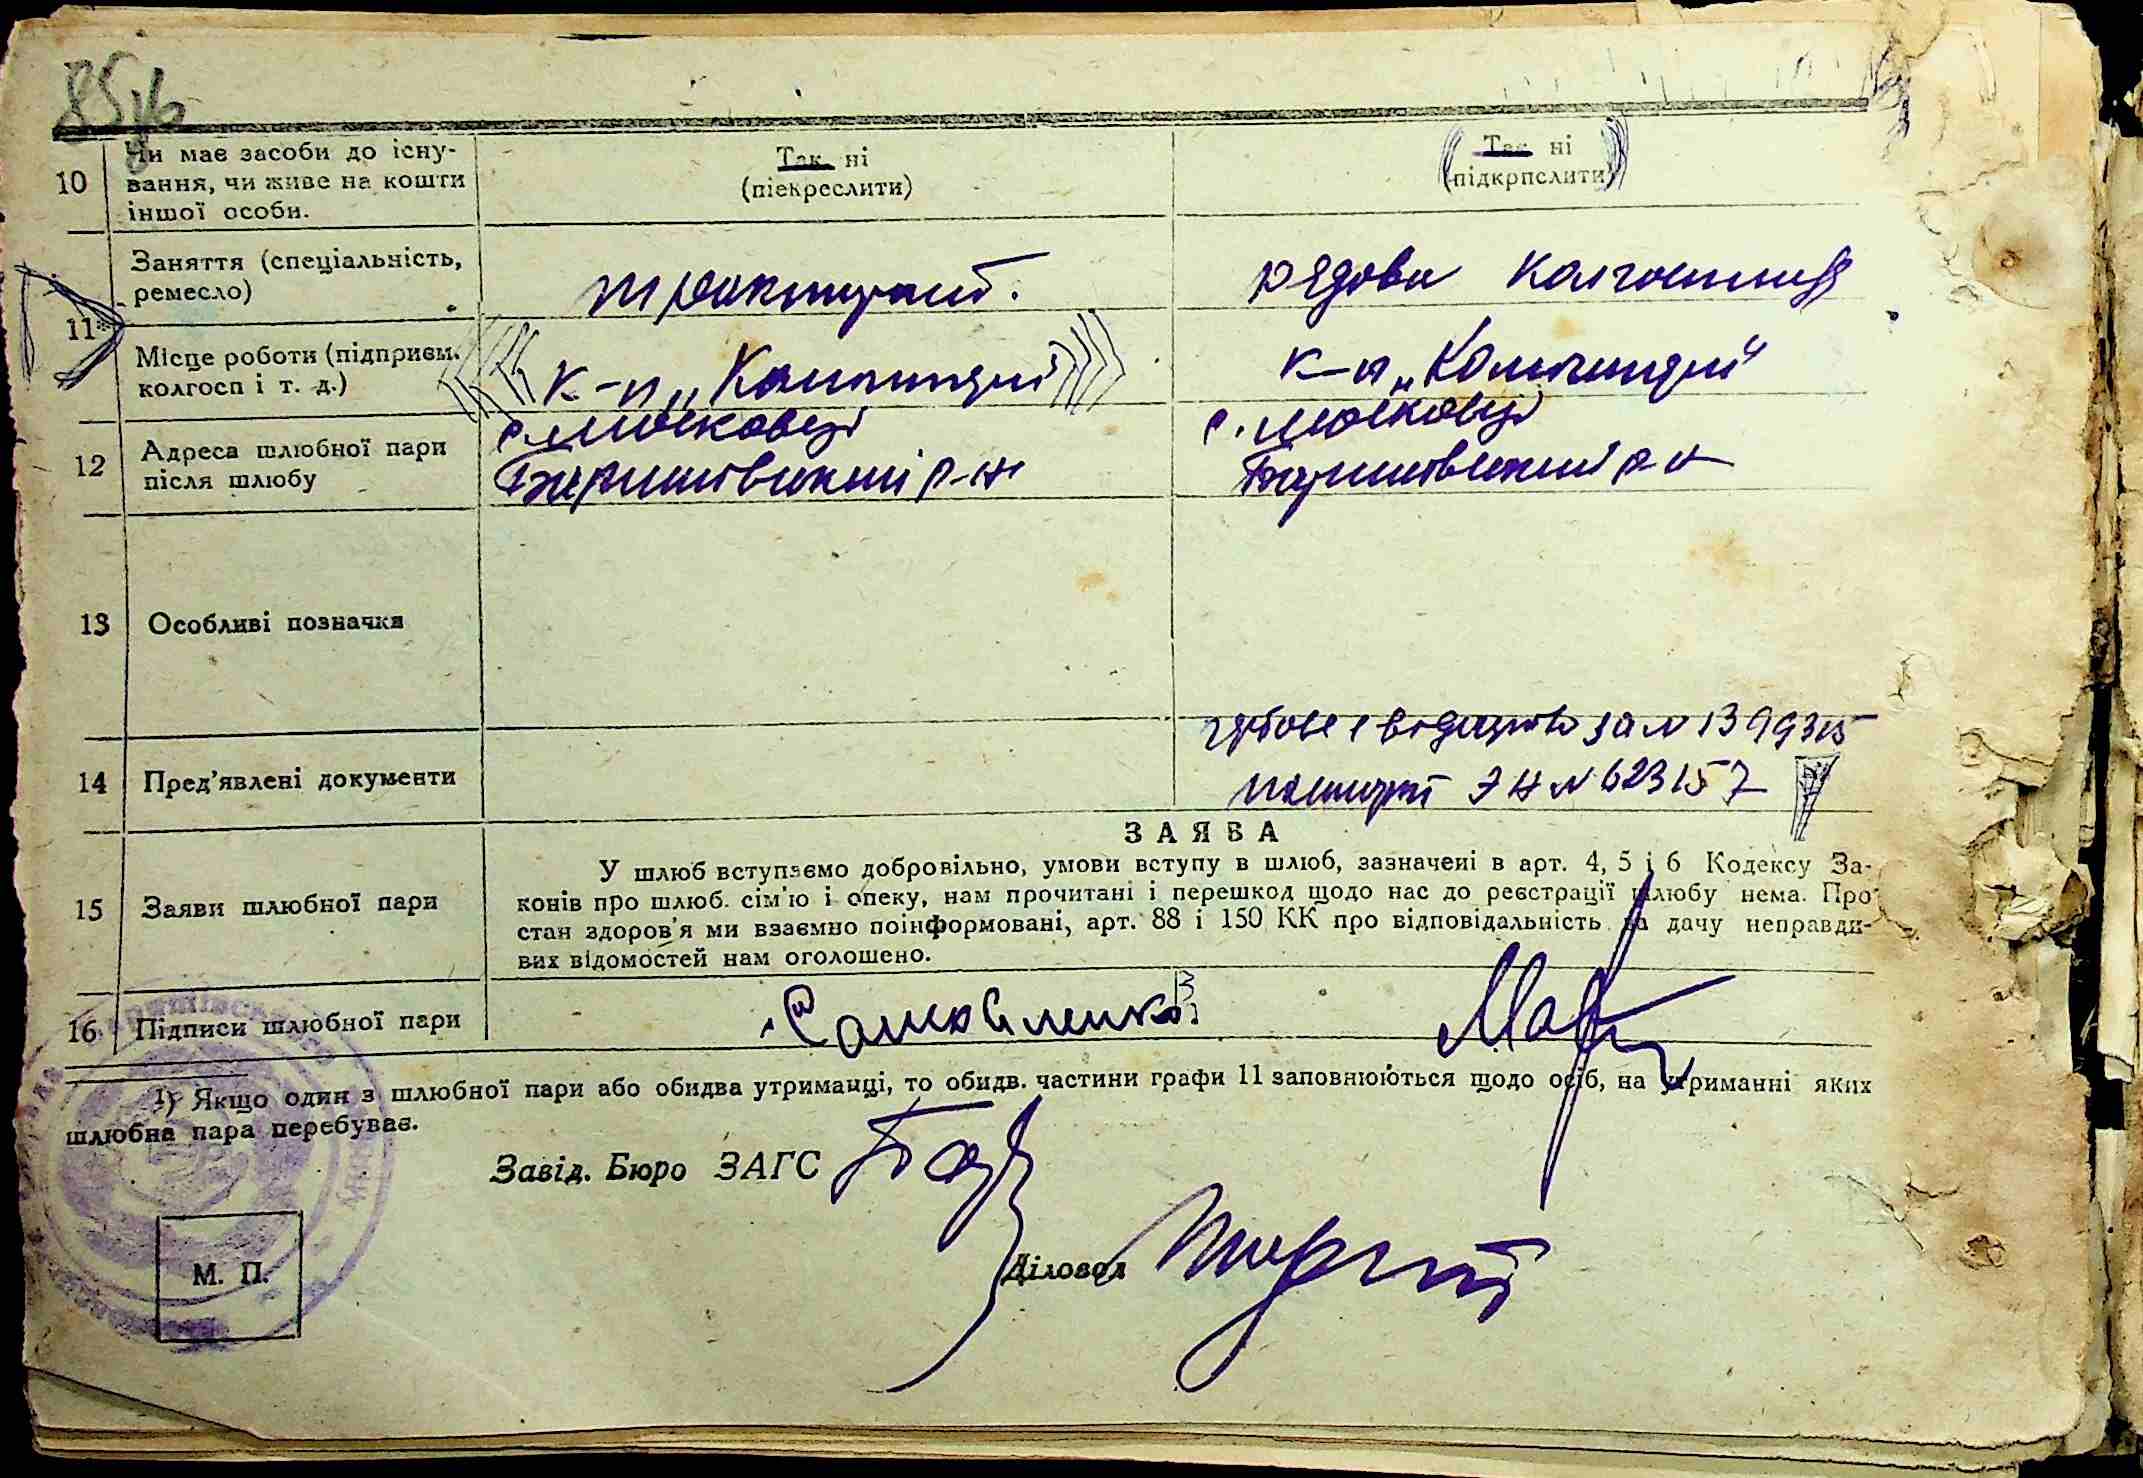 85
10
Чи має засоби до існу-
вання, чи живе на кошти
іншої особи.
Так ні
(піекреслити)
Так ні
(підкрпслити)
11
Заняття (спеціальність,
ремесло)
тракторист.
рядова колгоспниця
Місце роботи (підприєм.
колгосп і т. д.)
к-п „
к-п „
12
Адреса шлюбної пари
після шлюбу
с. Мостковці
Баришівський р-н
с. Мостковці
Баришівський р-н
13
Особливі позначки
14
Пред'явлені документи
за № 1399315
паспорт ЭН № 623157
15
Заяви шлюбної пари
ЗАЯВА
У шлюб вступаємо добровільно, умови вступу в шлюб, зазначені в арт. 4, 5 і 6 Кодексу За-
конів про шлюб. сім'ю і опеку, нам прочитані і перешкод щодо нас до реєстрації шлюбу нема. Про
стан здоров'я ми взаємно поінформовані, арт. 88 і 150 КК про відповідальність за дачу неправди-
вих відомостей нам оголошено.
16
Підписи шлюбної пари
Самойленко
1) Якщо один з шлюбної пари або обидва утриманці, то обидв. частини графи 11 заповнюються щодо осіб, на утриманні яких
шлюбна пара перебуває.
Завід. Бюро ЗАГС
Діловод
М. П.